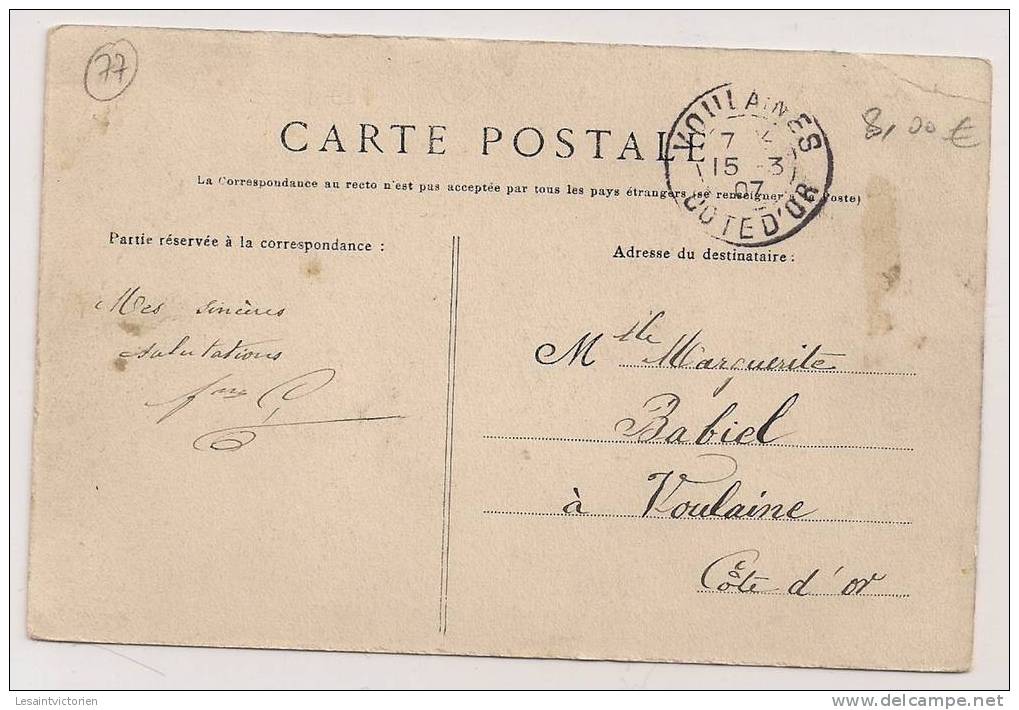 77
8,00 €
CARTE POSTALE
VOULAINES
7
15 -3
07
COTE D'OR
La Correspondance au recto n'est pas acceptée par tous les pays étrangers (se renseigner à la Poste)
Partie réservée à la correspondance :
Mes sincères
salutations
Adresse du destinataire :
Mlle Marguerite
Babiel
à Voulaine
Côte d'or
Lesaintvictorien
www.delcampe.net